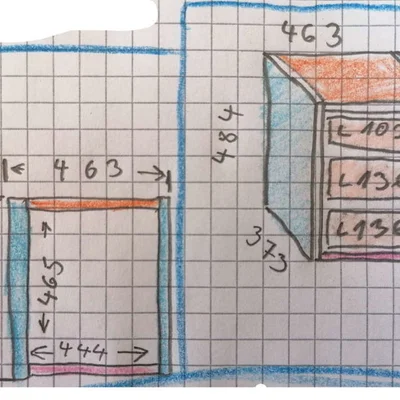 463
484
L 10
L136
L136
373
463
465
444